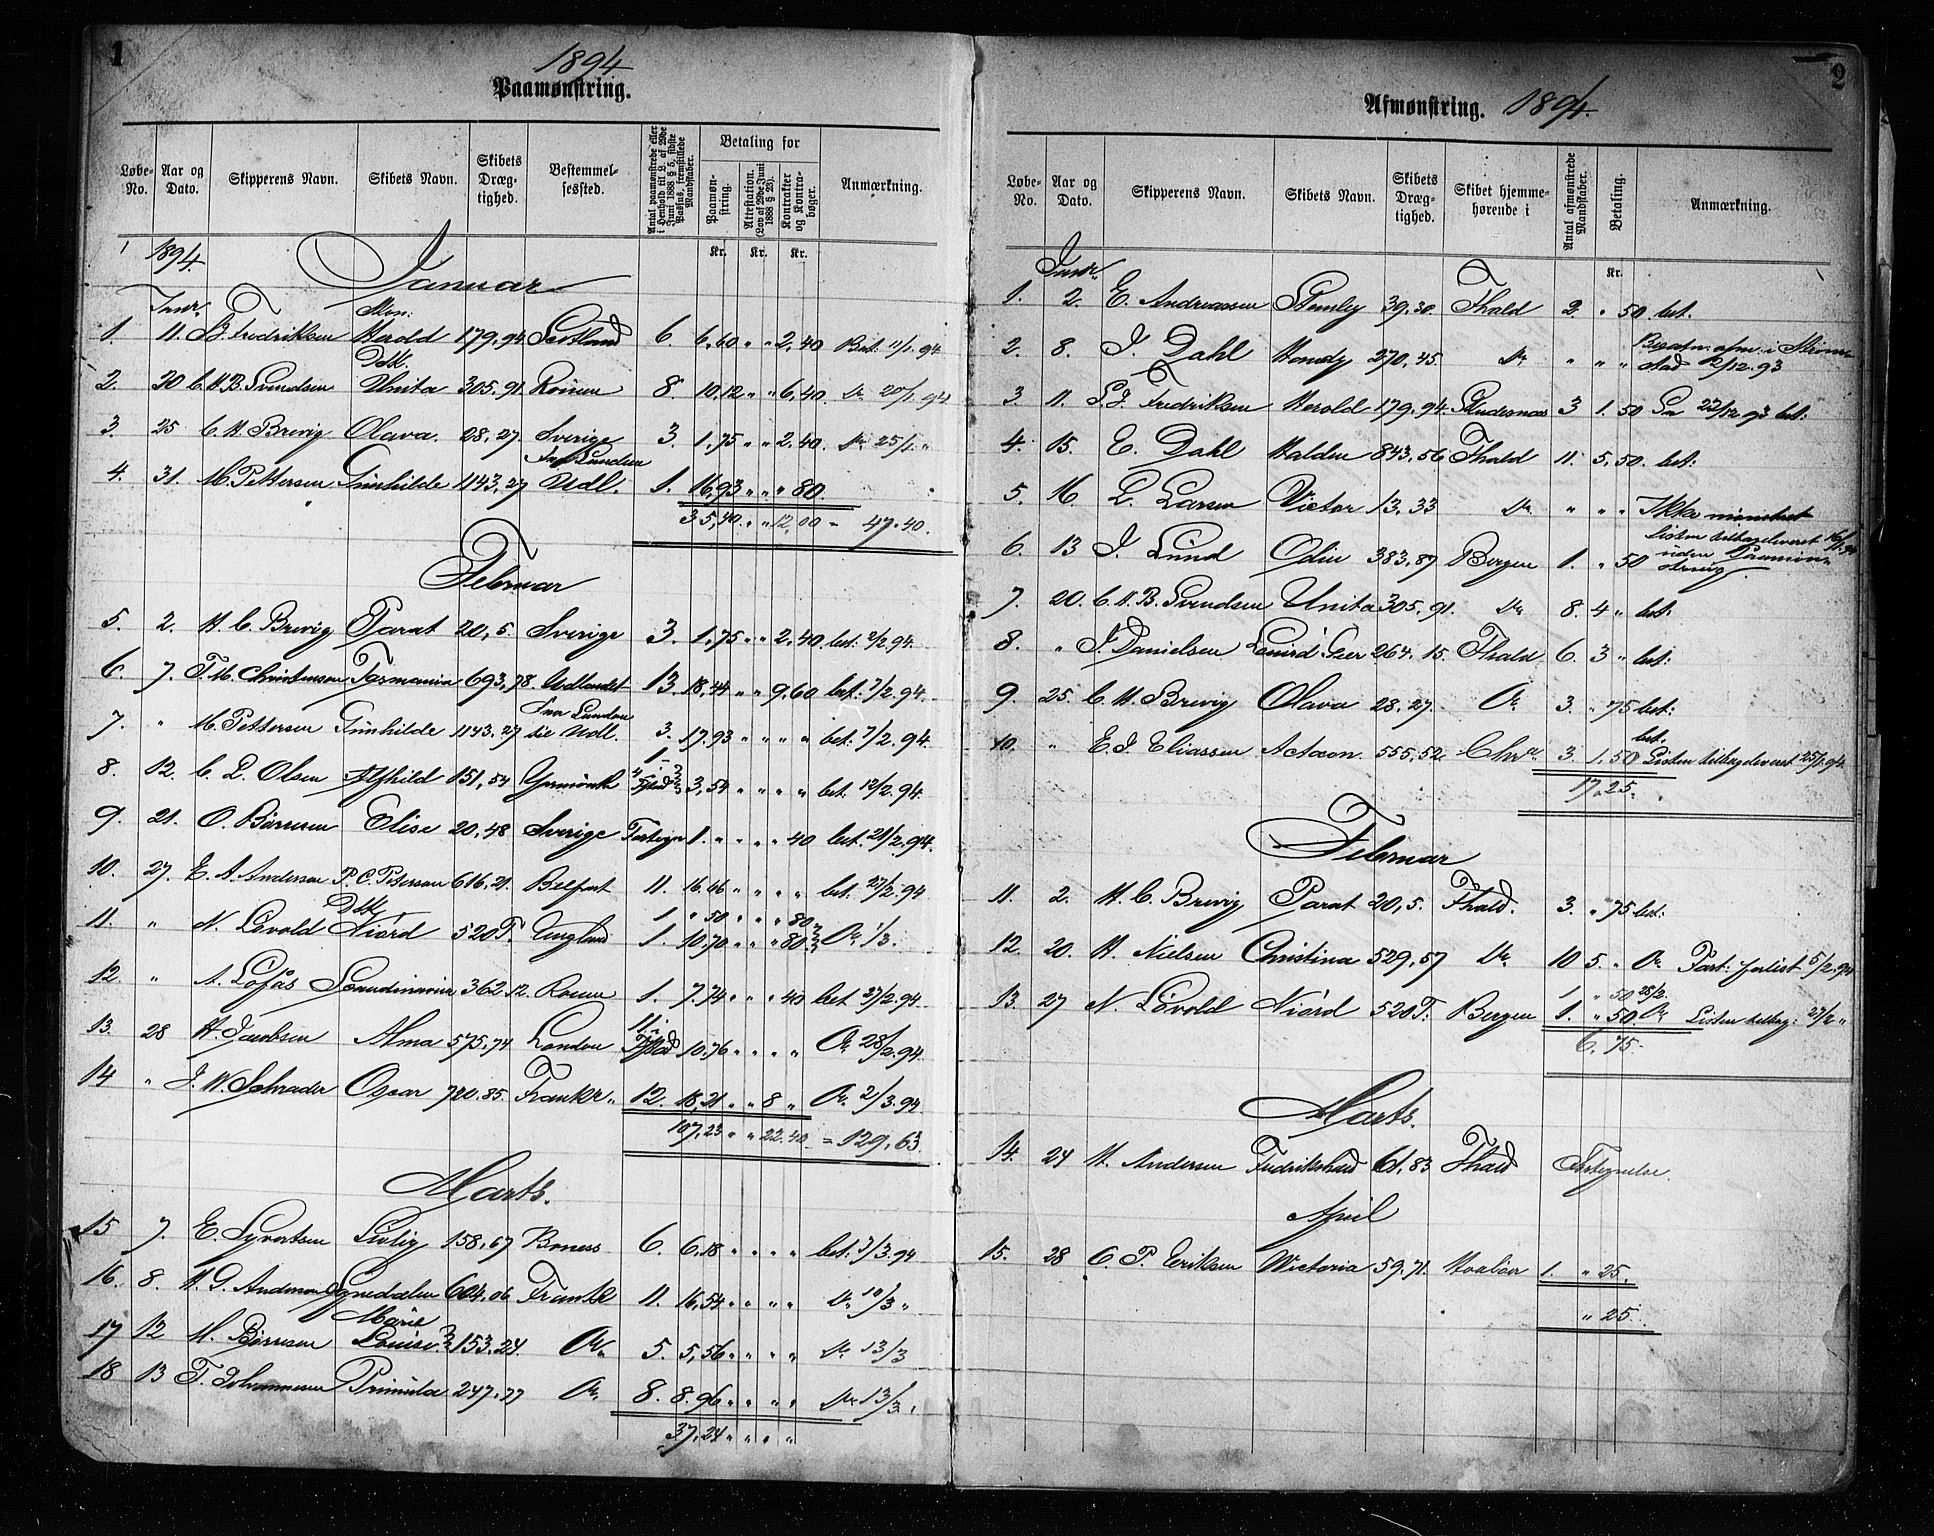 1
1894
Paamønstring.
Løbe-No. Aar og Dato. Skipperens Navn. Skibets Navn. Skibets Dræg-tighed. Bestemmel-sessted. Antal paamønstrede eller i Henhold til L. af 29de Juni 1888 § 5, sidste Passus, fremstillede Mandskaber. Betaling for Paamøn-string. Attestation. (Lov af 29de Juni 1888 § 25). Kontrakter og Kontra-bøger. Anmærkning.
1894. Kr. Kr. Kr.
Januar
Janr.
1. 11. Fredriksen Herold 179,94 6. 6,60 " " 2,40 Bet. 11/1. 94
2. 20 C. H. B. Svendsen Dsk. Unita 305,91. Rouen 8. 10,12 " " 6,40. Do 20/1. 94
3. 25 C. H. Brevig Olava. 28,27. Sverige 3. 1,75 " " 2,40 Do 25/1. "
4. 31. M. Pettersen Gunhilde 1143,27 Udl. 1. 16,93 " " " 80
35,40. " " 12,00 = 47.40.
Februar
5. 2. H. C. Brevig Parat 20,5. Sverige 3. 1,75 " " 2,40 bet. 2/2. 94.
6. 7. T. M. Christensen Tasmania 693,78. Udlandet 13. 18,44 " " 9,60 bet. 7/2. 94.
7. " M. Pettersen Gunhilde 1143,27 Fra London til Udl. 3. 17,93 " " " " bet. 7/2. 94.
8. 12. C. L. Olsen Alfhild 151,54 3,54 " " " " bet. 12/2. 94.
9. 21. O. Børresen Elise 20,48 Sverige Fortegn 1. " " " " 40 bet. 21/2. 94.
10. 27. E. A. Andersen P. C. Petersen 616,21. Belfast 11. 16,66 " " " " bet. 27/2. 94
11. " N. Løvold Dsk. Niörd 520 T. England 1. " 50 " " " 80
1. 10,70 " " " 80 Do 1/3.
12. " A. Lofås Scandinavien 362,12. Rouen 1. 7,74 " " " 40 bet 27/2. 94.
13. 28 H. Jacobsen Alma 575,74 London 11. i 10,76 " " " " Do 28/2. 94.
14 " J. W. Schrader Oscar 720,85. Frankr. 12. 18,21 " " 8 " Do 2/3. 94
107,23 " " 22.40 = 129,63
Marts.
15 7. E. Syvertsen Livlig 158,67 Boness 6. 6,18 " " " " bet. 7/3. 94
16. 8. H. D. Andersen Ognedalen 604,06 Frankr. 11. 16,54 " " " " Do 10/3 "
17 12 M. Børresen Marie Louise 153,24. Do 5. 5,56 " " " " Do 13/3
18 13 T. Johannesen Primula 247,77 Do 8. 8,96 " " " " Do 13/3.
37,24 " " " "
2
Afmønstring. 1894.
Løbe-No. Aar og Dato. Skipperens Navn. Skibets Navn. Skibets Dræg-tighed. Skibet hjemme-hørende i Antal afmønstrede Mandskaber. Betaling. Anmærkning.
Kr.
Janr.
1. 2. E. Andreassen Stanley 39,30. Fhald 2. " 50 bet.
2. 8. J. Dahl 270,45. Do " " " Besætn. afm. i Strømstad 2/12. 93
3. 11. Fredriksen Herold 179,94. Skudesnæs 3 1,50 22/12 93 bet.
4. 15. E. Dahl Halden 843,56 Fhald 11. 5,50. bet.
5. 16. L. Larsen Victor 13,33 Do " " " Ikke mønstret
6. 13 J. Lund Odin 383,87 Bergen 1. " 50 Listen tilbageleveret 16/1. 94 uden
7. 20. C. H. B. Svendsen Unita 305,91. Do 8. 4 " bet.
8. " J. Danielsen 264,15. Fhald 6. 3 " bet.
9. 25. C. H. Brevig Olava 28,27. Do 3. " 75 bet.
10. " E. J. Eliassen Actæon 555,52. Chra 3. 1,50 bet. Listen tilbageleveret 25/1. 94
17,25.
Februar
11. 2. H. C. Brevig Parat 20,5. Fhald. 3. " 75 bet.
12. 20. H. Nielsen Christina 529,57 Do 10 5. " Do Fart. forlist 5/2. 94
13. 27 N. Løvold Niörd 520 T. Bergen 1 " 50 28/2.
1. " 50. Do Listen tilbag. 27/2 "
6,75.
Marts.
14. 24 H. Andersen Fredrikshald 61,83 Fhald Fortegnelse.
April
15. 28 C. P. Eriksen Victoria 59,71. 1. " 25.
" 25.